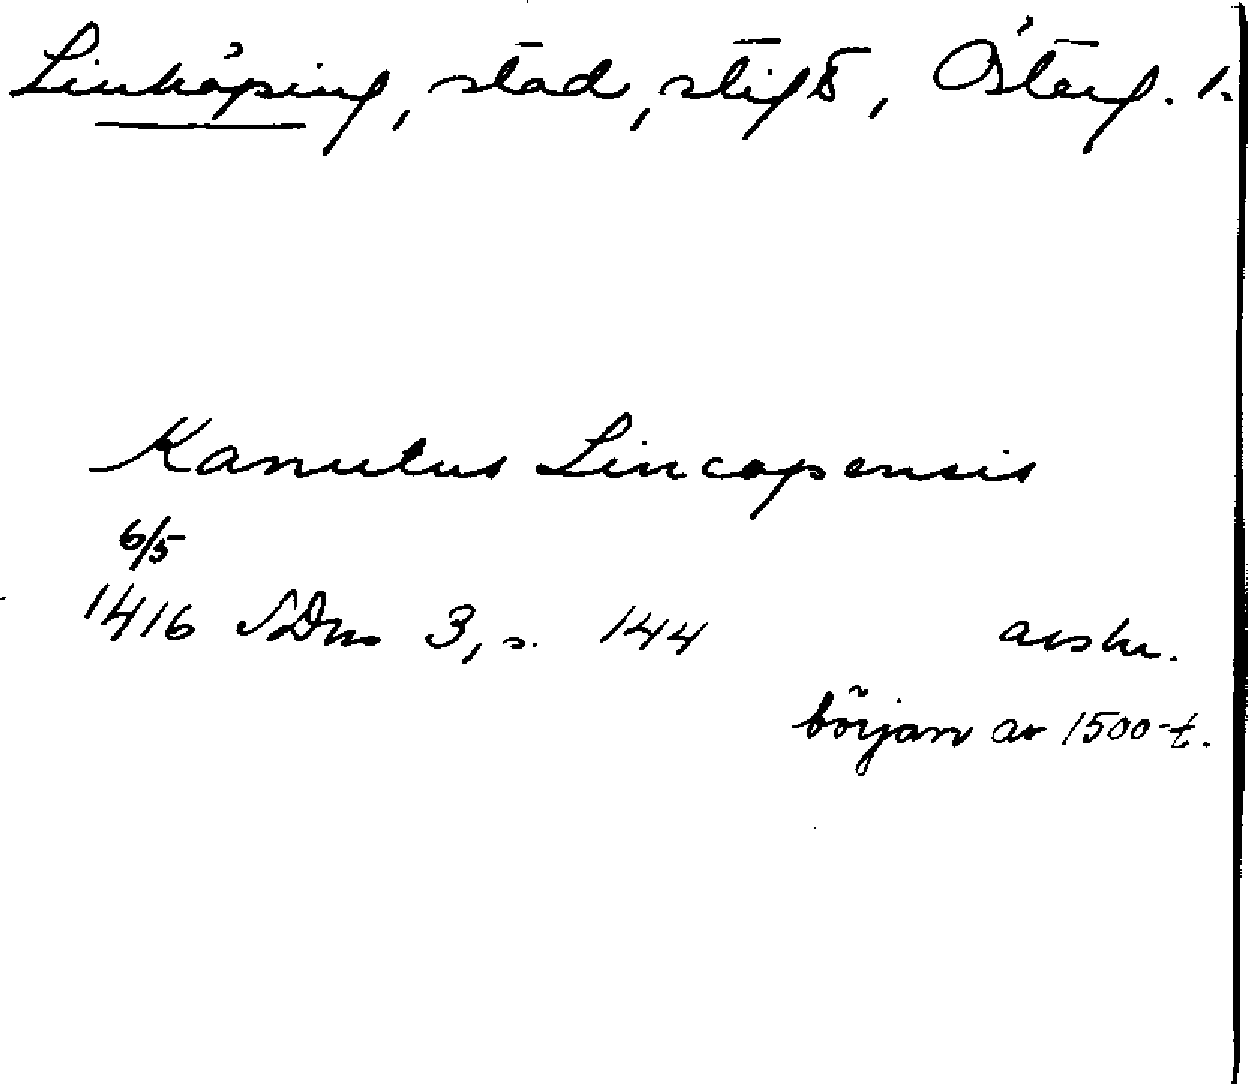 Linköping, stad, stift, Österg. l.
Kanutus Lincopensis
6/5
1416 SDns 3, s. 144 avskr.
början av 1500-t.